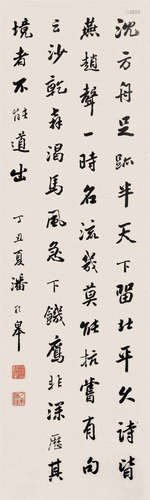 沈方舟足跡半天下留北平久詩皆
燕趙聲一時名流幾莫能抗嘗有句
云沙乾舂渴馬風急下饑鷹非深歷其
境者不能道出
丁丑夏潘齡皋